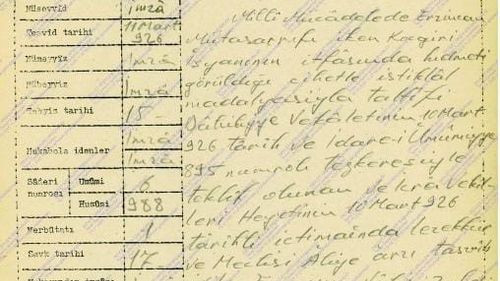 Müsevvid
İmzâ
Tesvid tarihi
11 Mart
926
Mümeyyiz
İmzâ
Mübeyyiz
İmzâ
Tebyiz tarihi
15 -
Mukabele idenler
İmzâ
İmzâ
Sâderi numrosı
Umûmi
6
Husûsi
988
Merbûtatı
1
Sevk tarihi
17 -
Milli Mücâdelede Erzincan
Mutasarrıfı iken Koçgiri
İsyanının itfâsında hidmeti
görüldüğü cihetle istiklâl
madalyasiyla taltifi
Dâhiliyye Vekâletinin 10 Mart
926 tarih ve idare-i Umûmiyye
895 numrolı tezkeresiyle
teklif olunan ve İcra Vekil-
leri Heyetinin 10 Mart 926
tarihli ictimaında tezekkür
ve Meclisi Âliye arzı tasvib